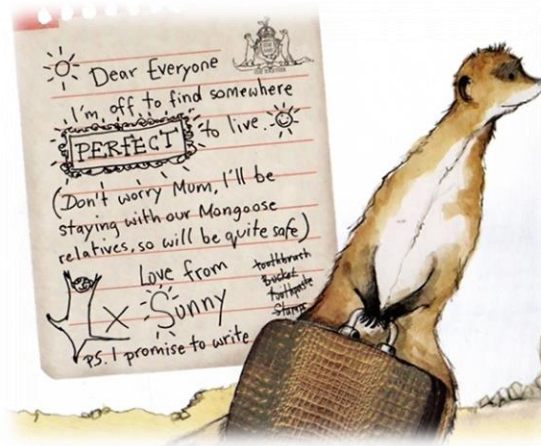 Dear Everyone
I'm off to find somewhere
PERFECT to live.
(Don't worry Mum, I'll be
staying with our Mongoose
relatives, so will be quite safe)
Love from
X Sunny
toothbrush
Bucket
toothpaste
Stamps
PS. I promise to write